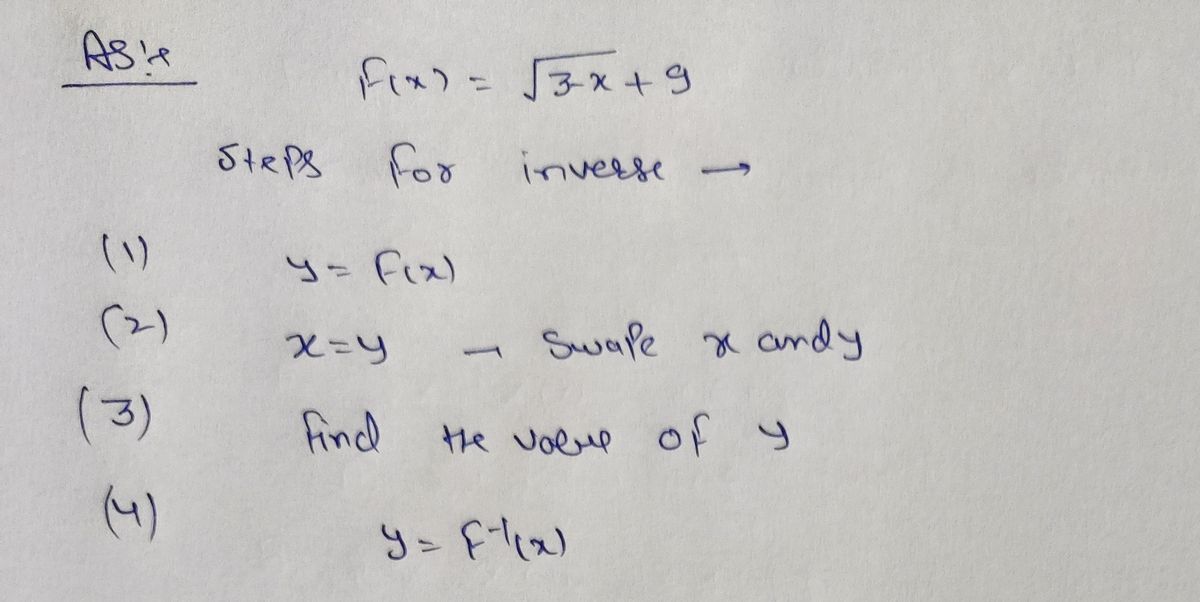 F(x) = √3-x + 9
Steps for inverse →
(1) y = F(x)
(2) x=y → Swape x and y
(3) Find the value of y
(4) y = F⁻¹(x)